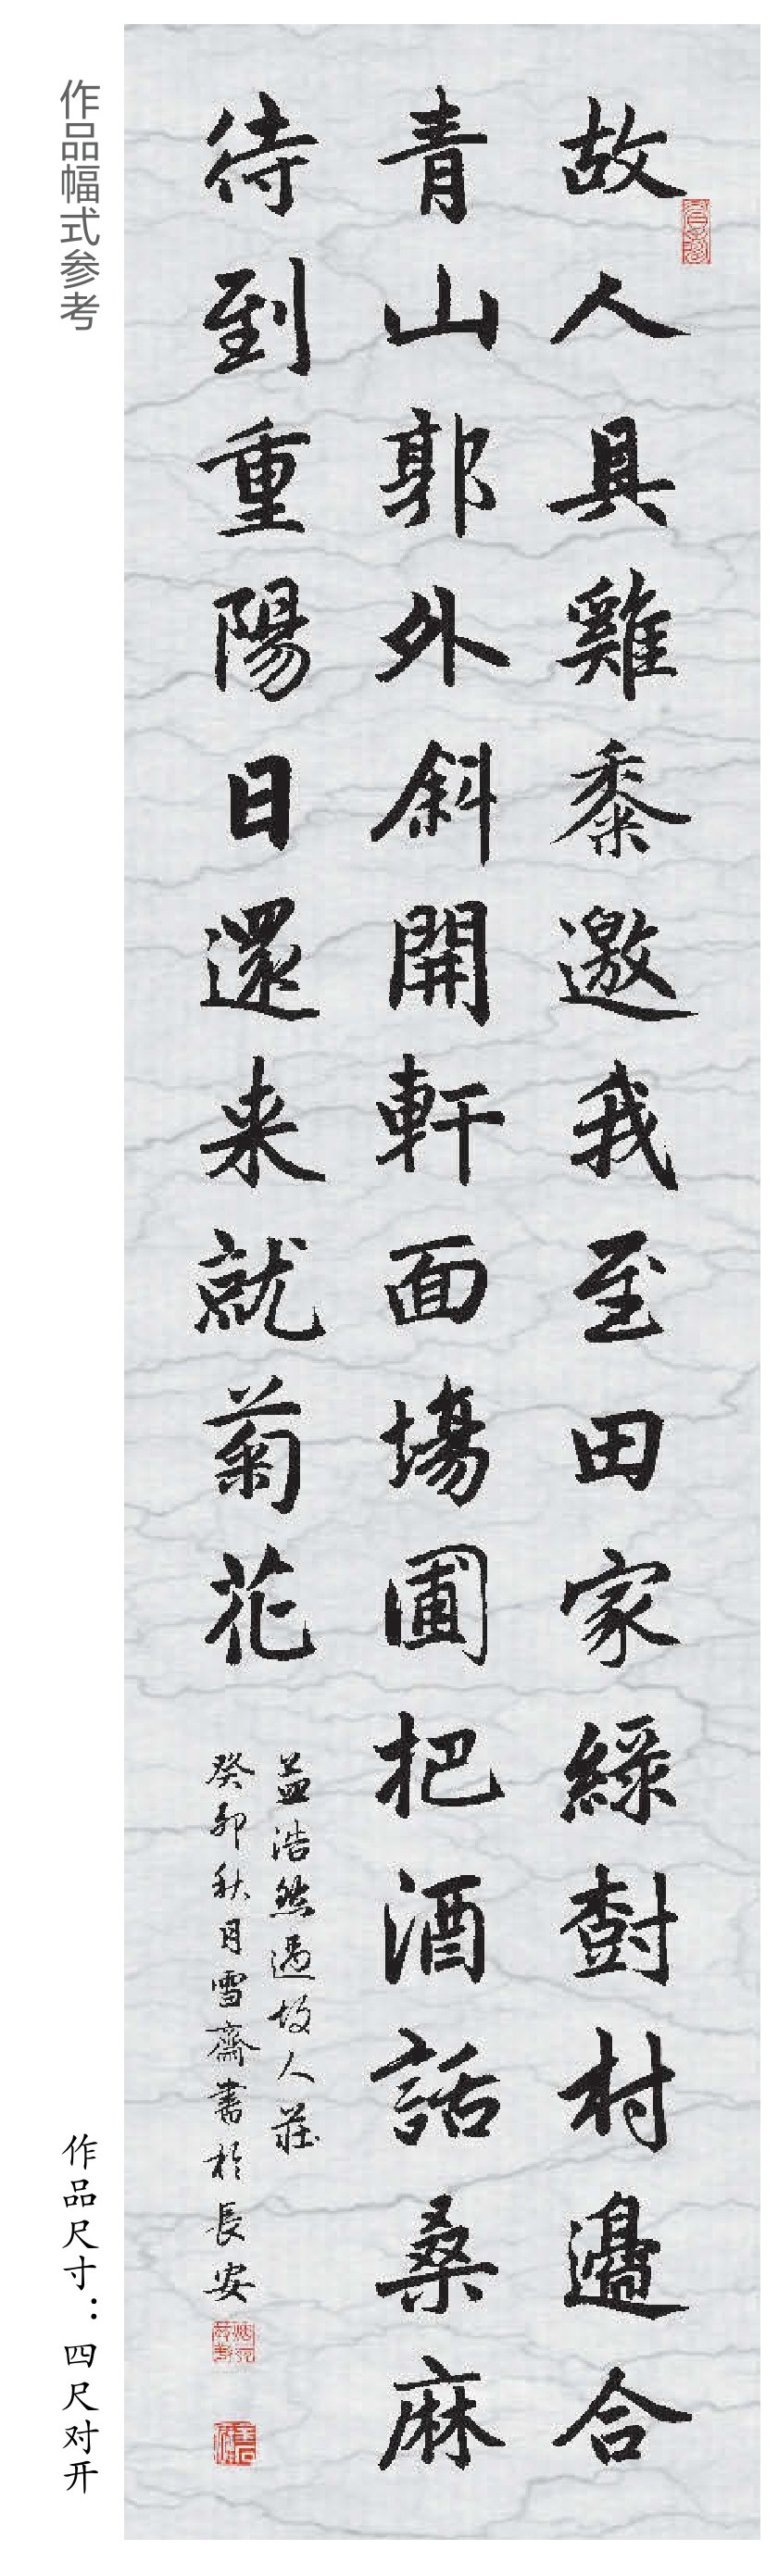 作品幅式参考
故人具雞黍邀我至田家綠樹村邊合
青山郭外斜開軒面場圃把酒話桑麻
待到重陽日還来就菊花
孟浩然過故人莊
癸卯秋月雪齋書於長安
作品尺寸：四尺对开